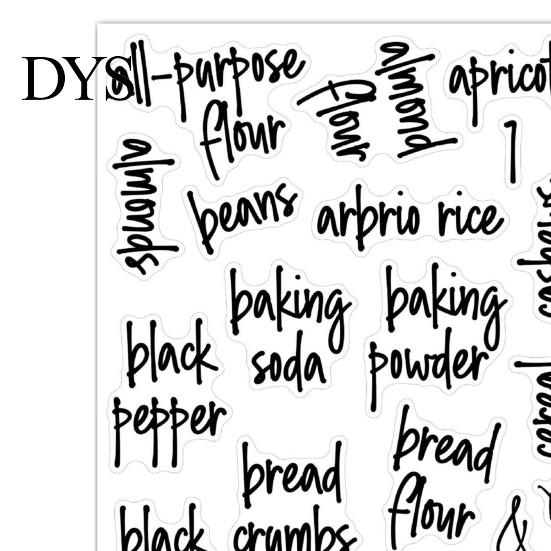 DYS
all-purpose
flour
almond
flour
apricot
almonds
beans
arbrio rice
baking
soda
baking
powder
black
pepper
bread
flour
cereal
bread
crumbs
black
&